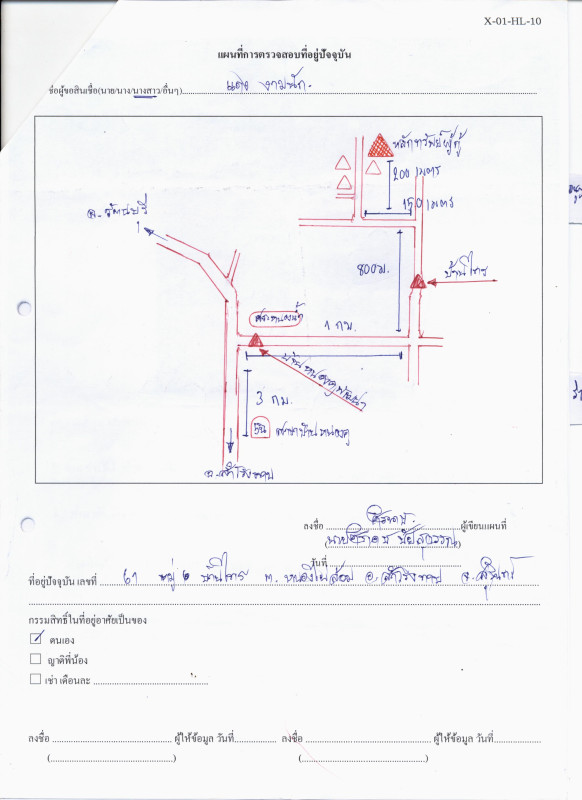 X-01-HL-10
แผนที่การตรวจสอบที่อยู่ปัจจุบัน
ชื่อผู้ขอสินเชื่อ(นาย/นาง/นางสาว/อื่นๆ) แดง งามนัก
หลักทรัพย์ผู้กู้
200 เมตร
150 เมตร
อ.รัตนบุรี
800 ม.
บ้านไทร
สระหนองน้ำ
1 กม.
3 กม.
อ.สำโรงทาบ
ลงชื่อ ผู้เขียนแผนที่
วันที่
ที่อยู่ปัจจุบัน เลขที่ 67 หมู่ 6 บ้านไทร ต. หนองไผ่ล้อม อ.สำโรงทาบ จ.สุรินทร์
กรรมสิทธิ์ในที่อยู่อาศัยเป็นของ
ตนเอง
ญาติพี่น้อง
เช่า เดือนละ
ลงชื่อ ผู้ให้ข้อมูล วันที่ ลงชื่อ ผู้ให้ข้อมูล วันที่